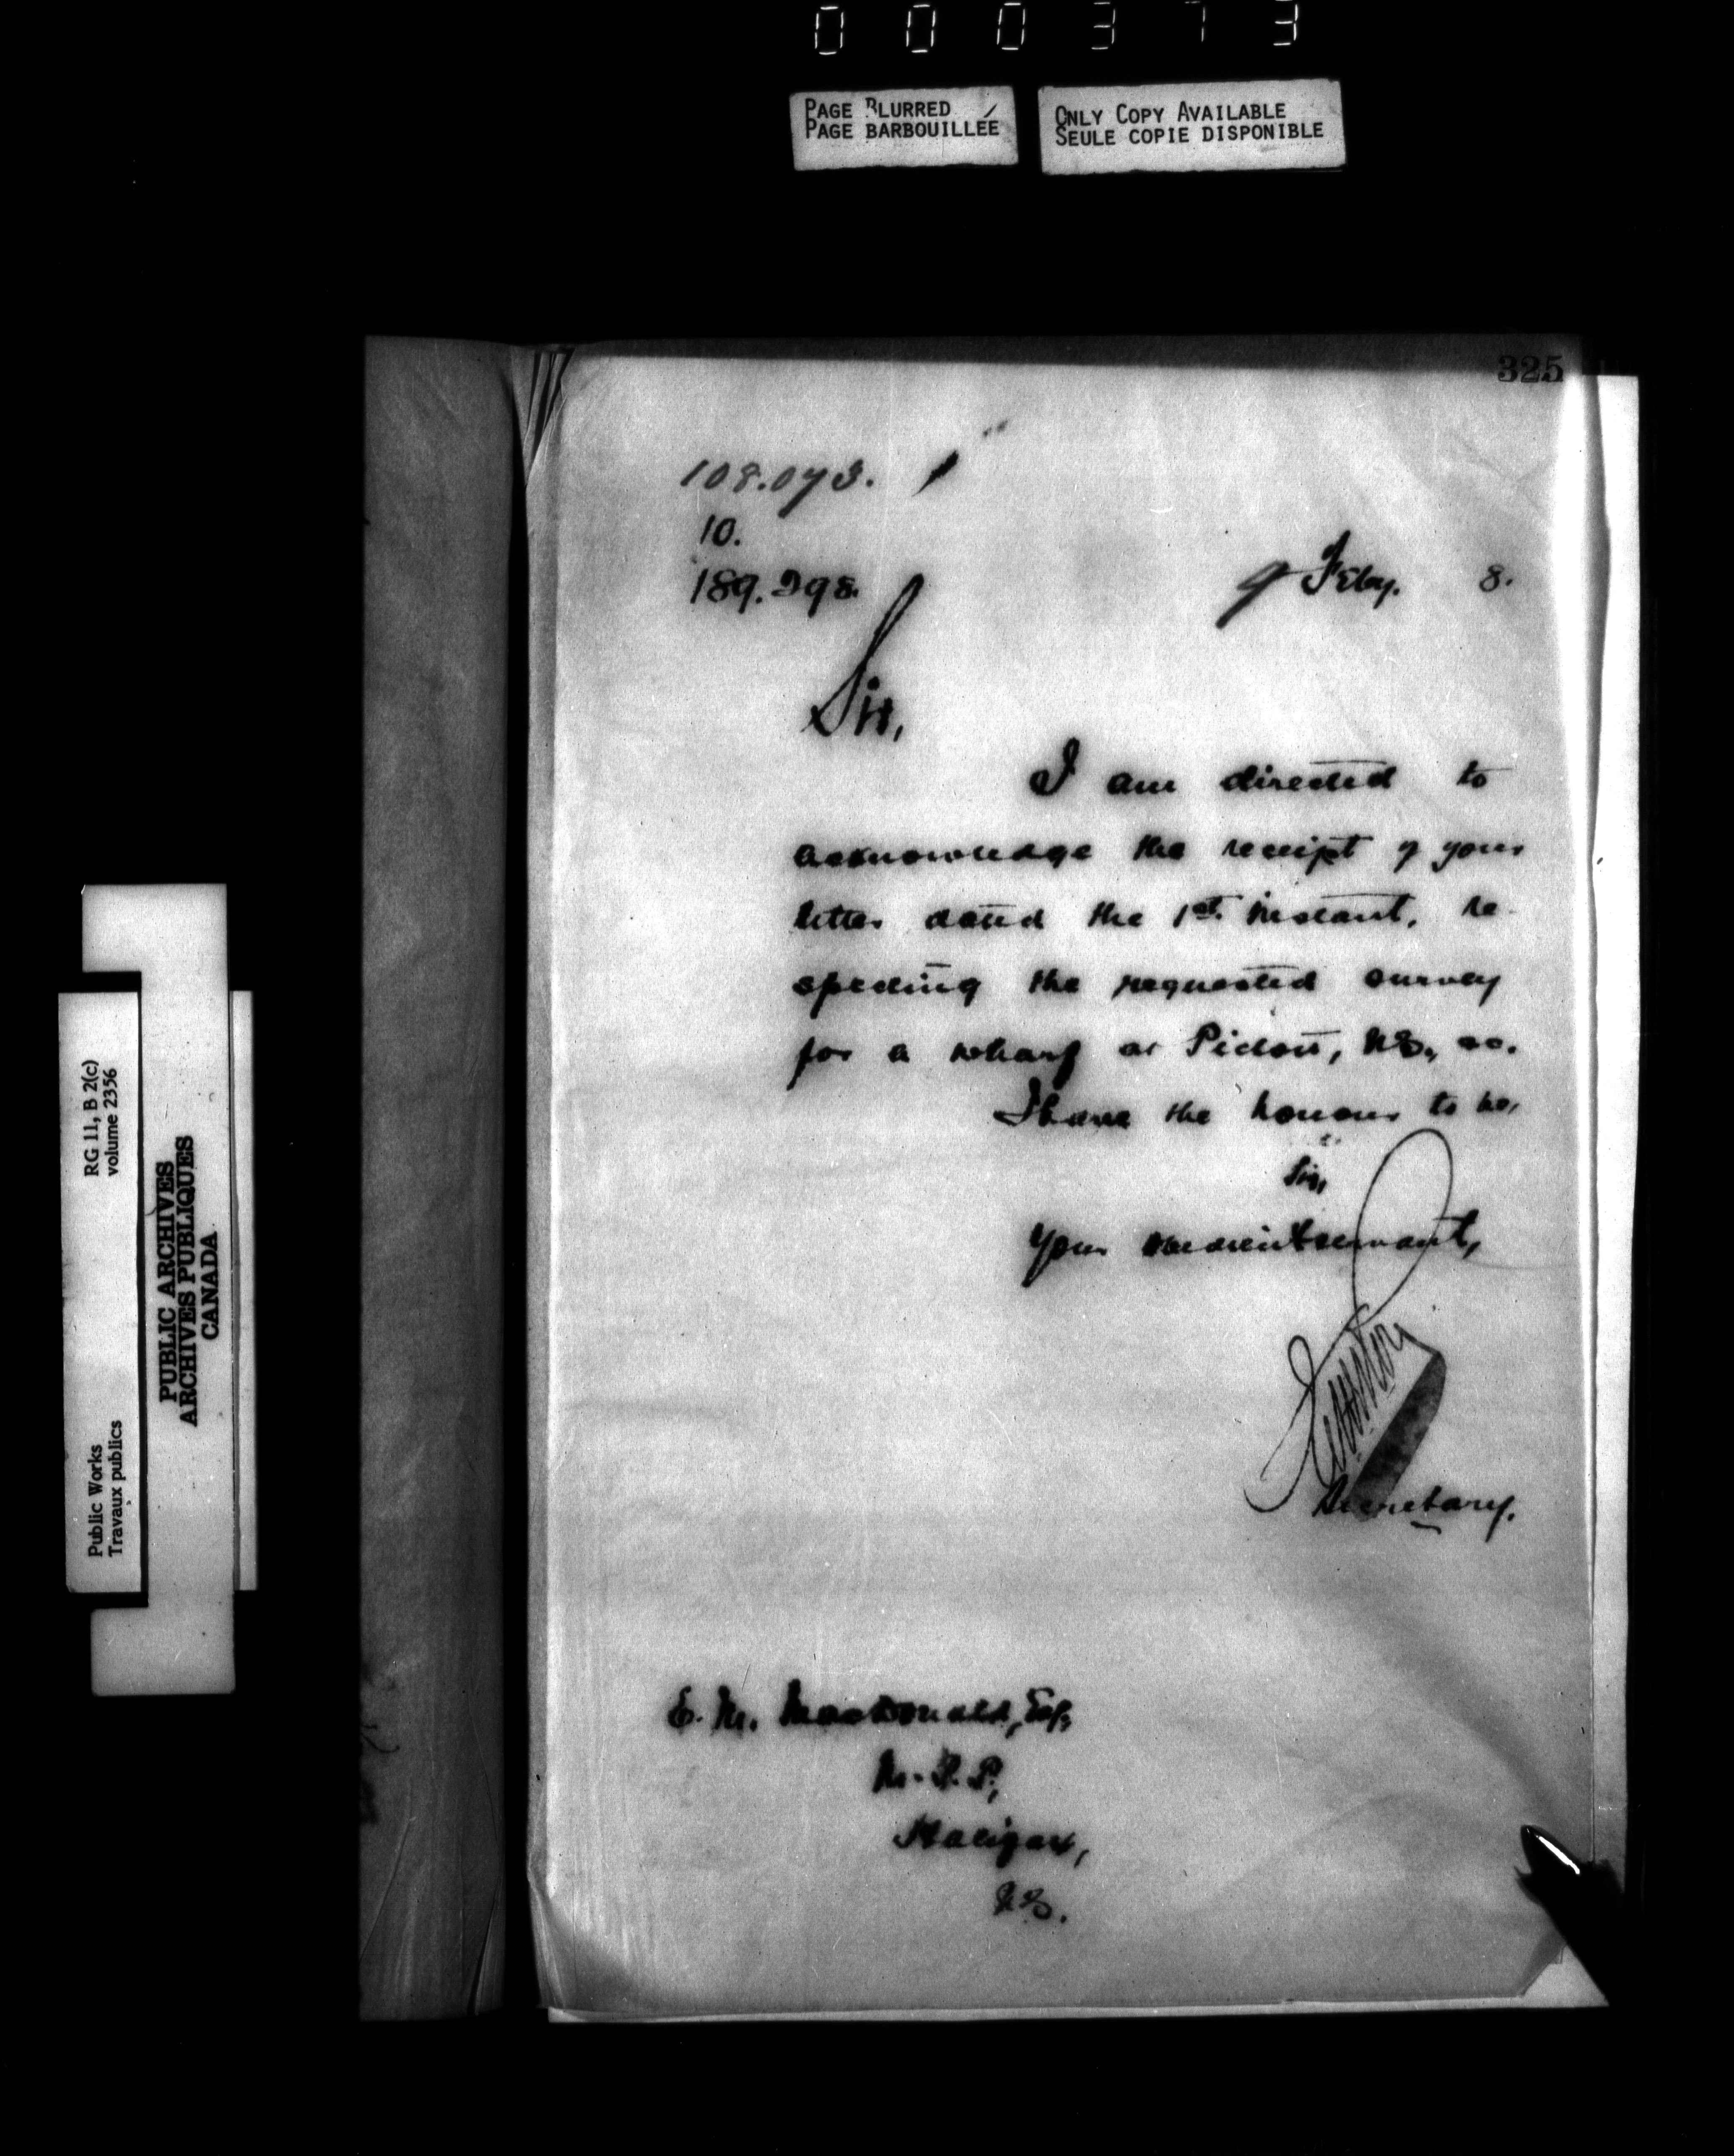 000373
PAGE BLURRED
PAGE BARBOUILLÉE
ONLY COPY AVAILABLE
SEULE COPIE DISPONIBLE
325
108.073.
10.
189.398.
9 Feby. 8.
Sir,
I am directed to
acknowledge the receipt of your
letter dated the 1st. instant, re-
specting the requested survey
for a wharf at Pictou, N.S., &c.
I have the honour to be,
Sir,
Your obedient servant,
Secretary.
E. M. MacDonald, Esq,
M.P.P,
Halifax,
N.S.
RG 11, B 2(c)
volume 2356
Public Works
Travaux publics
PUBLIC ARCHIVES
ARCHIVES PUBLIQUES
CANADA